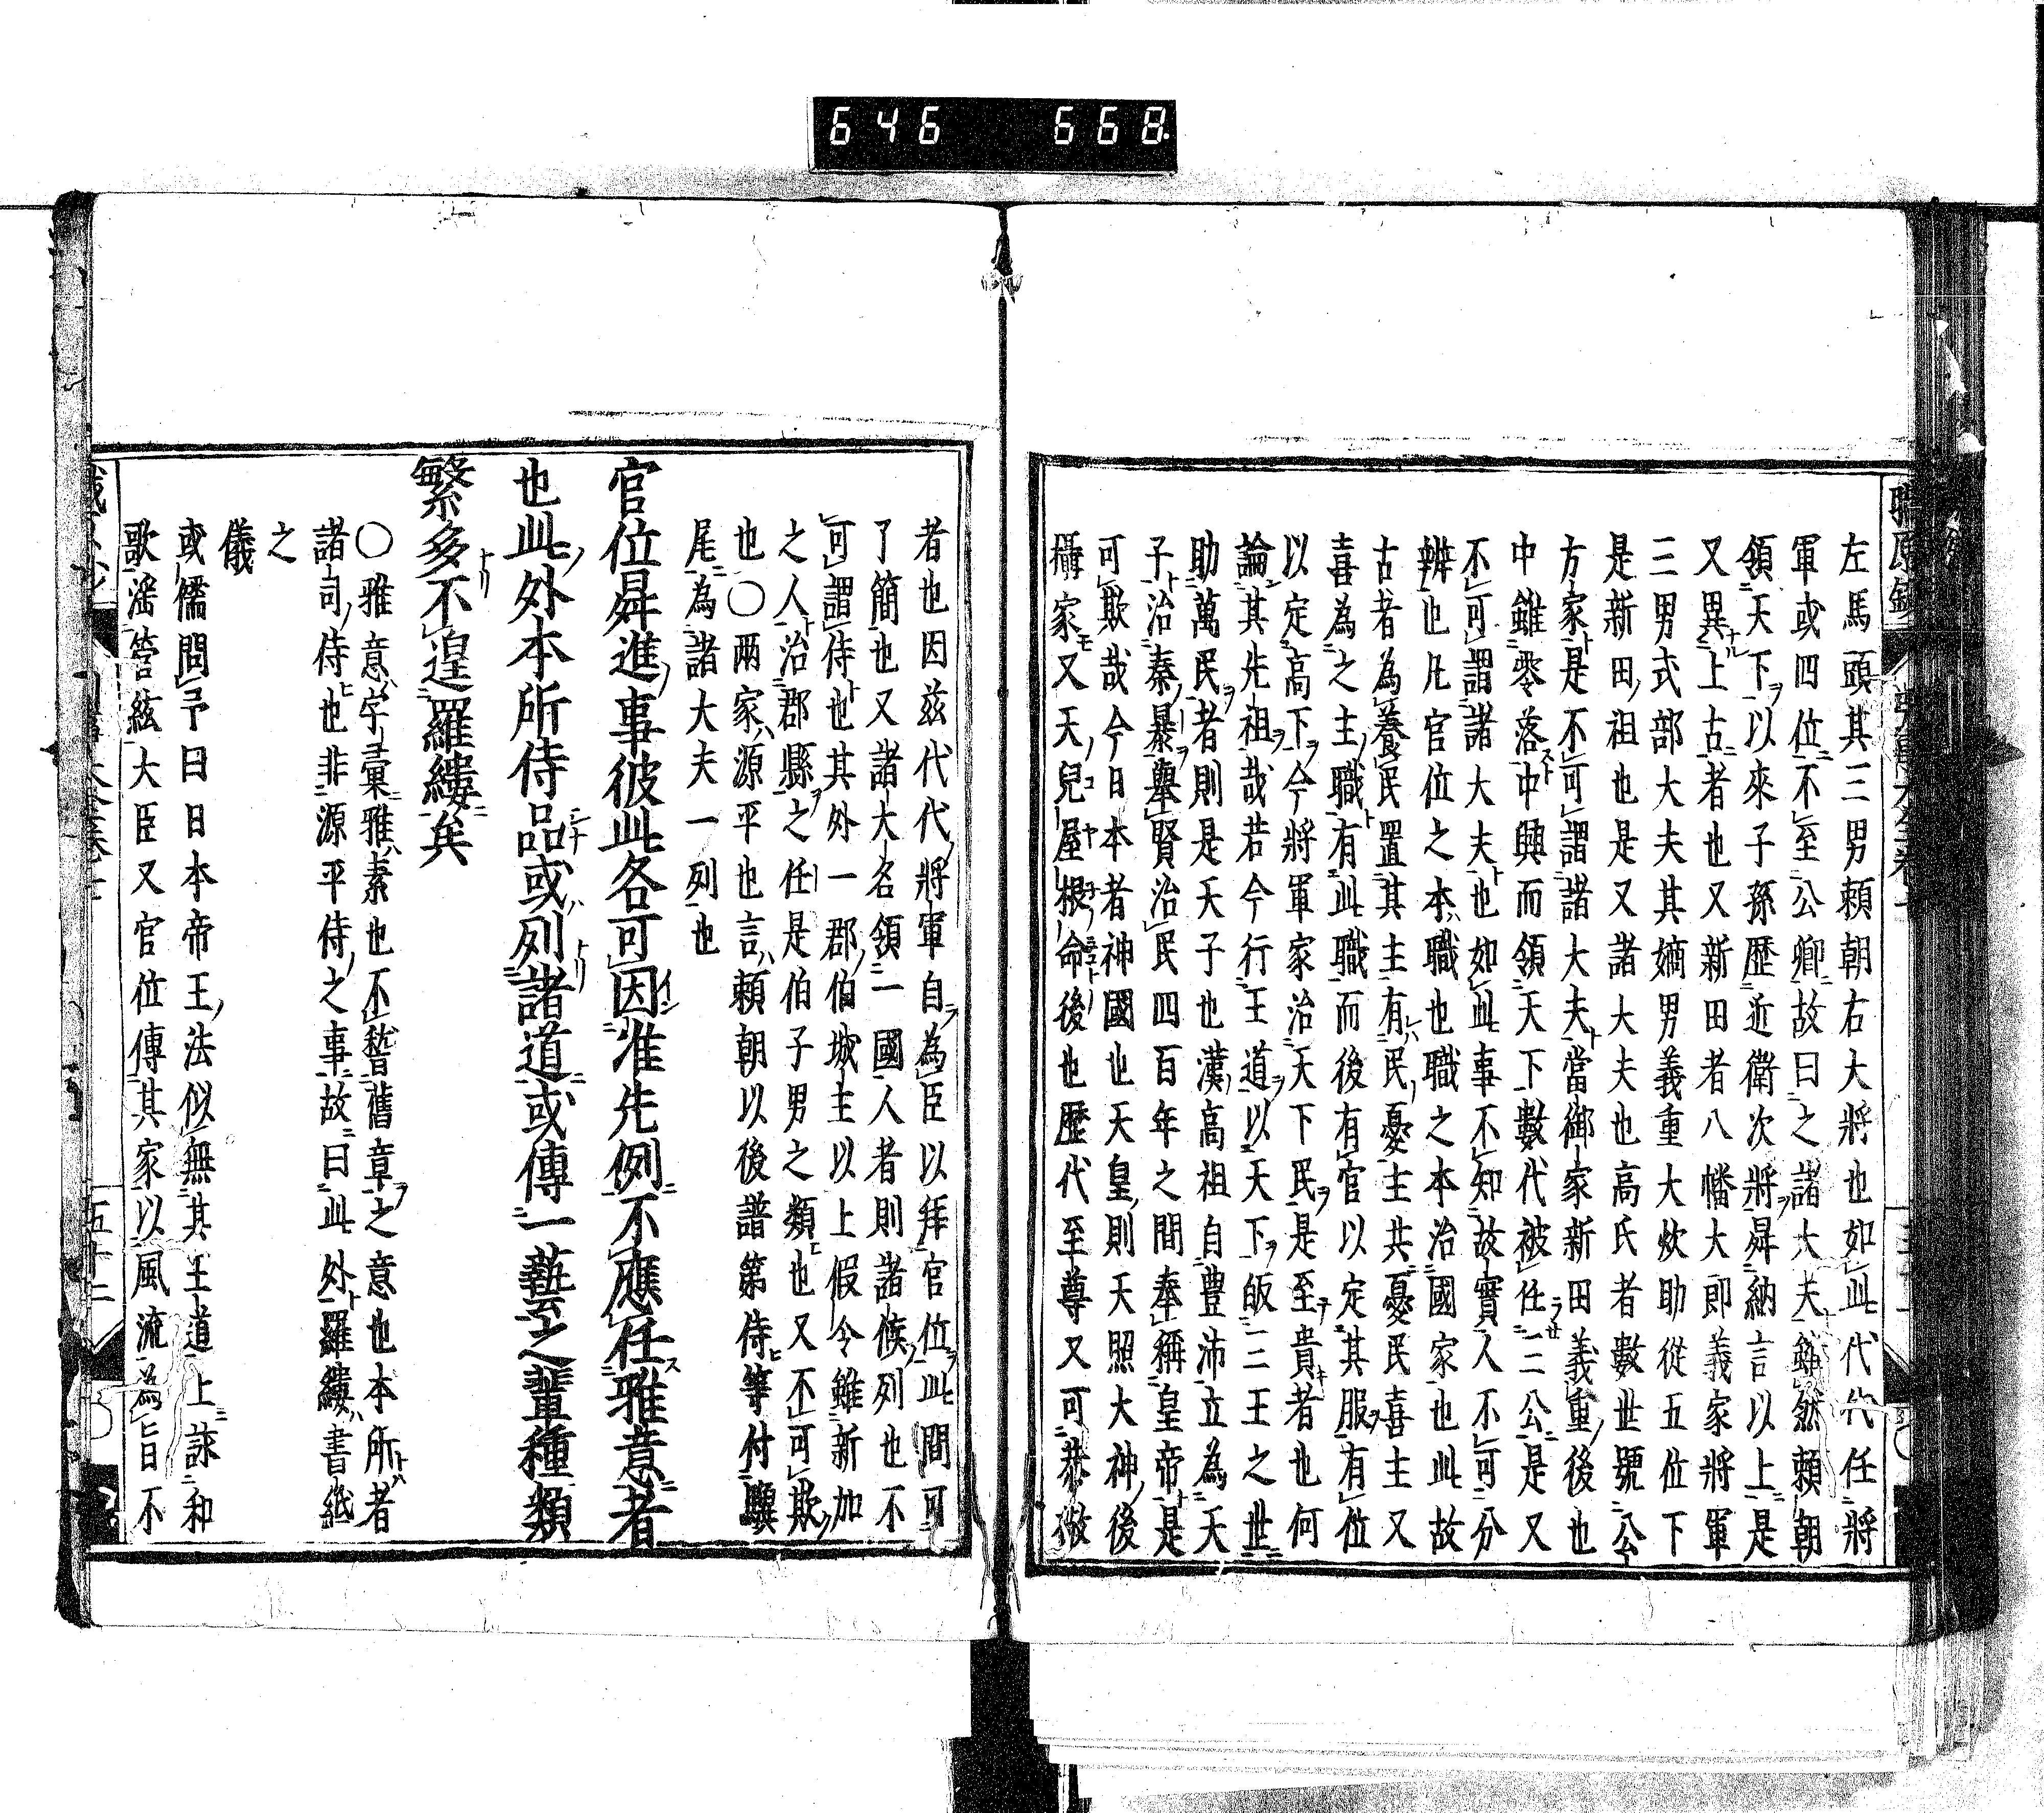 646 668
左馬頭其三男頼朝右大將也如此代代任將
軍或四位不至公卿故曰之諸大夫雖然頼朝
領天下以來子孫歴近衛次將昇納言以上是
又異上古者也又新田者八幡大郎義家將軍
三男式部大夫其嫡男義重大炊助從五位下
是新田祖也是又諸大夫也高氏者數世號公
方家是不可謂諸大夫當御家新田義重後也
中雖零落中興而領天下數代被任三公是又
不可謂諸大夫也如此事不知故實人不可分
辨也凡官位之本職也職之本治國家也此故
古者為養民置其主有民憂主共憂民喜主又
喜為之主職有此職而後有官以定其服有位
以定高下今將軍家治天下民是至貴者也何
論其先祖哉若今行王道以天下皈三王之世
助萬民者則是天子也漢高祖自豊沛立為天
子治秦暴擧賢治民四百年之間奉稱皇帝是
可欺哉今日本者神國也天皇則天照大神後
攝家又天兒屋根命後也歴代至尊又可恭敬
者也因茲代代將軍自為臣以拜官位此間可
了簡也又諸大名領一國人者則諸侯列也不
可謂侍也其外一郡伯城主以上假令雖新加
之人治郡縣之任是伯子男之類也又不可欺
也〇兩家源平也言頼朝以後譜第侍等付驥
尾為諸大夫一列也
官位昇進事彼此各可因准先例不應任雅意者
也此外本所侍品或列諸道或傳一藝之輩種類
繁多不遑羅縷矣
〇雅意字彙雅素也不替舊章之意也本所者
諸司侍也非源平侍之事故曰此外羅縷書紙
之
儀
或儒問予曰日本帝王法似無其王道上詠和
歌滛管絃大臣又官位傳其家以風流為旨不